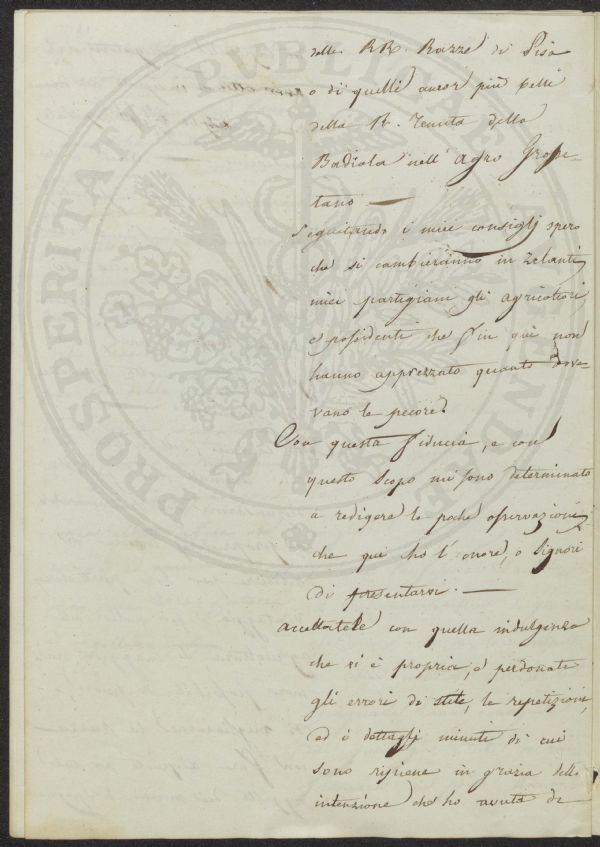 delle RR. Razze di Pisa
o di quelli ancor più belli
della R. Tenuta della
Badiola nell' Agro Grosse-
tano —
Seguitando i miei consigli spero
che si cambieranno in zelanti
miei partigiani gli agricoltori
e possidenti che fin quì non
hanno apprezzato quanto dove-
vano le pecore.
Con questa fiducia, e con
questo scopo mi sono determinato
a redigere le poche osservazioni
che qui ho l'onore, o Signori
di presentarvi. —
accettatele con quella indulgenza
che vi è propria, e perdonate
gli errori di stile, le repetizioni,
ed i dettagli minuti di cui
sono ripiene in grazia della
intenzione che ho avuta di
PROSPERITATI PUBLICAE AUGENDAE